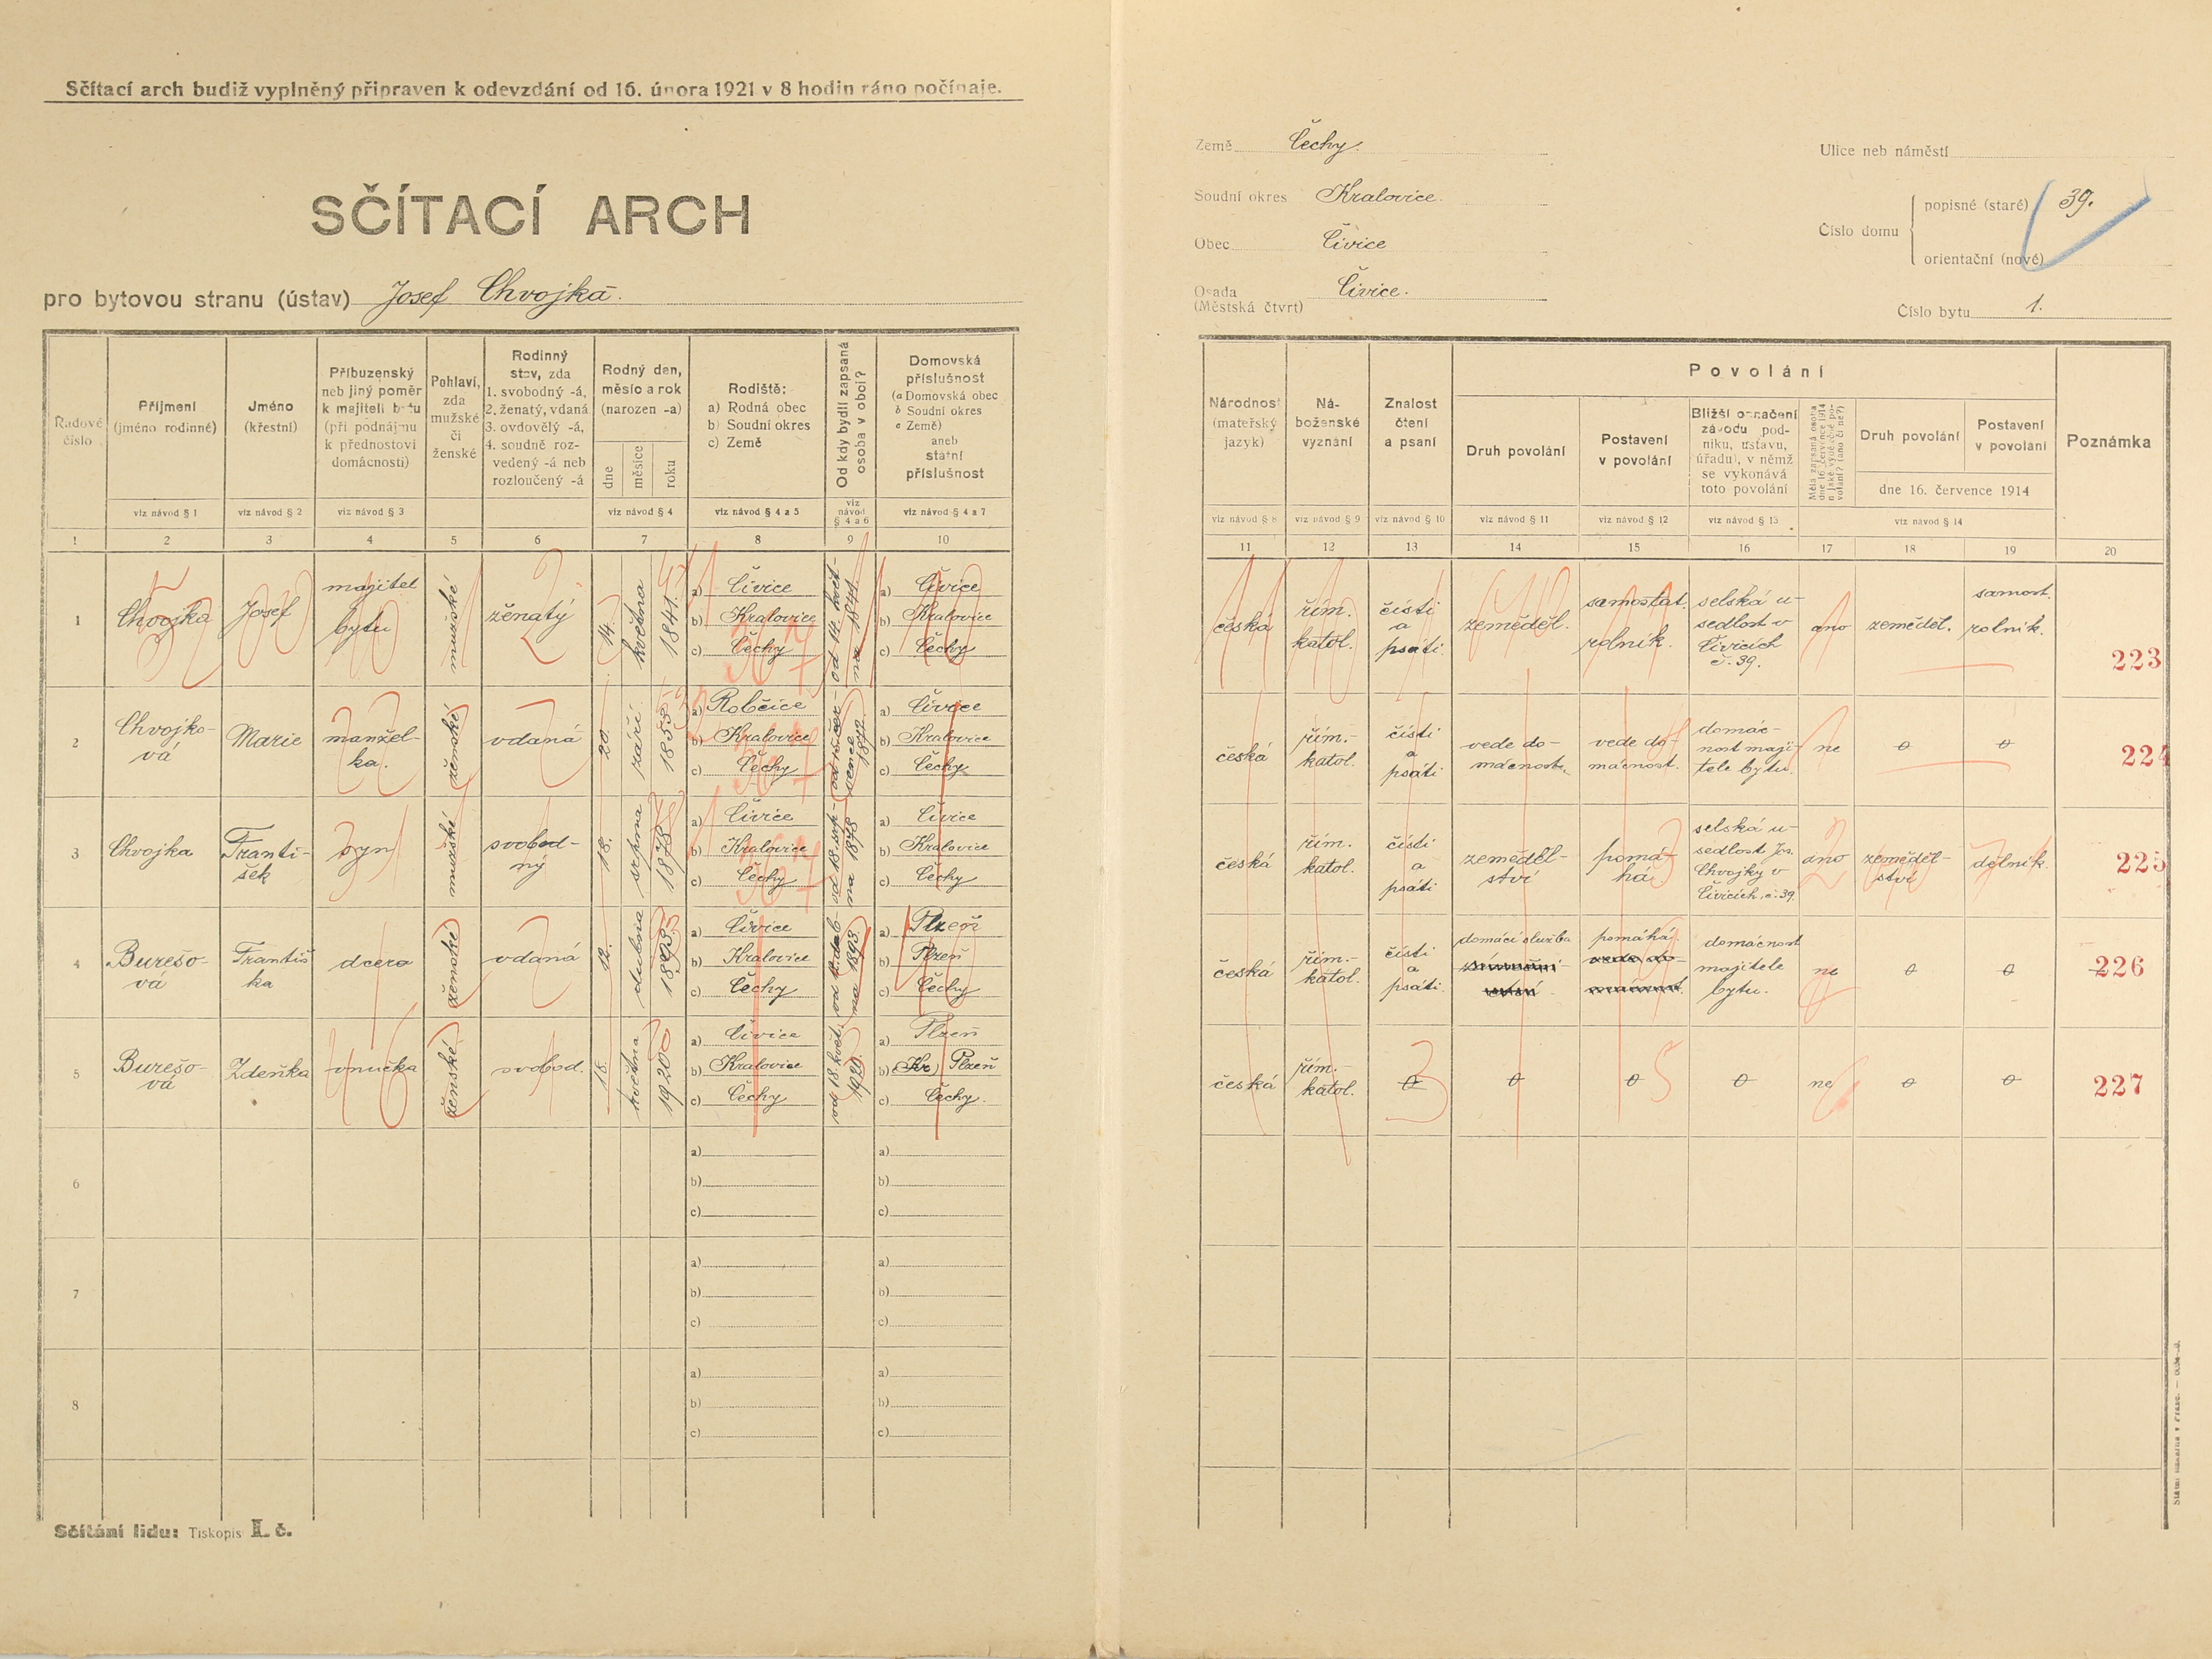 Sčítací arch budiž vyplněný připraven k odevzdání od 16. února 1921 v 8 hodin ráno počínaje.
SČÍTACÍ ARCH
pro bytovou stranu (ústav) Josef Chvojka.
Země Čechy.
Soudní okres Kralovice.
Obec Čivice
Osada Čivice.
(Městská čtvrť)
Ulice neb náměstí
Číslo domu
popisné (staré) 39.
orientační (nové)
Číslo bytu 1.
Řadové
číslo
Příjmení
(jméno rodinné)
viz návod § 1
Jméno
(křestní)
viz návod § 2
Příbuzenský
neb jiný poměr
k majiteli bytu
(při podnájmu
k přednostovi
domácnosti)
viz návod § 3
Pohlaví,
zda
mužské
či
ženské
Rodinný
stav, zda
1. svobodný -á,
2. ženatý, vdaná
3. ovdovělý -á,
4. soudně roz-
vedený -á neb
rozloučený -á
Rodný den,
měsíc a rok
(narozen -a)
dne
měsíce
roku
viz návod § 4
Rodiště:
a) Rodná obec
b) Soudní okres
c) Země
viz návod § 4 a 5
Od kdy bydlí zapsaná
osoba v obci?
viz
návod
§ 4 a 6
Domovská
příslušnost
(a Domovská obec
b Soudní okres
c Země)
aneb
státní
příslušnost
viz návod § 4 a 7
1 2 3 4 5 6 7 8 9 10
Národnost
(mateřský
jazyk)
viz návod § 8
Ná-
boženské
vyznání
viz návod § 9
Znalost
čtení
a psaní
viz návod § 10
Povolání
Druh povolání
viz návod § 11
Postavení
v povolání
viz návod § 12
Bližší označení
závodu (pod-
niku, ústavu,
úřadu), v němž
se vykonává
toto povolání
viz návod § 13
Měla zapsaná osoba
dne 16. července 1914
nějaké výdělečné po-
volání? (ano či ne?)
Druh povolání
Postavení
v povolání
dne 16. července 1914
viz návod § 14
Poznámka
11 12 13 14 15 16 17 18 19 20
1
Chvojka
Josef
majitel
bytu
mužské
ženatý
14.
května
1841.
a) Čivice
b) Kralovice
c) Čechy
od 14. květ-
na 1841.
a) Čivice
b) Kralovice
c) Čechy
česká
řím.
katol.
čísti
a
psáti.
zeměděl.
samostat.
rolník.
selská u-
sedlost v
Čivicích
č. 39.
ano
zeměděl.
samost.
rolník.
223
2
Chvojko-
vá
Marie
manžel-
ka.
ženské
vdaná
20.
září
1853
a) Robčice
b) Kralovice
c) Čechy
od čer-
vence
1872.
a) Čivice
b) Kralovice
c) Čechy
česká
řím.-
katol.
čísti
a
psáti
vede do-
mácnost.
vede do-
mácnost.
domác-
nost maji-
tele bytu.
ne
0
0
224
3
Chvojka
Franti-
šek
syn
mužské
svobod-
ný
18.
srpna
1878
a) Čivice
b) Kralovice
c) Čechy
od 18. srp-
na 1878
a) Čivice
b) Kralovice
c) Čechy
česká
řím.
katol.
čísti
a
psáti
zeměděl-
ství
pomá-
há
selská u-
sedlost Jos.
Chvojky v
Čivicích č. 39.
ano
zeměděl-
ství
dělník.
225
4
Burešo-
vá
Františ
ka
dcera
ženské
vdaná
12.
dubna
1893
a) Čivice
b) Kralovice
c) Čechy
od 12. dub-
na 1893.
a) Plzeň
b) Plzeň
c) Čechy
česká
řím.-
katol.
čísti
a
psáti.
domácí služba
pomáhá
vede do-
mácnost.
domácnost
majitele
bytu.
ne
0
0
226
5
Burešo-
vá
Zdeňka
vnučka
ženské
svobod.
18.
května
1920
a) Čivice
b) Kralovice
c) Čechy
od 18. květ.
1920.
a) Plzeň
b) Kr. Plzeň
c) Čechy.
česká
řím.-
katol.
0
0
0
0
ne
0
0
227
6
a)
b)
c)
a)
b)
c)
7
a)
b)
c)
a)
b)
c)
8
a)
b)
c)
a)
b)
c)
Sčítání lidu: Tiskopis I. č.